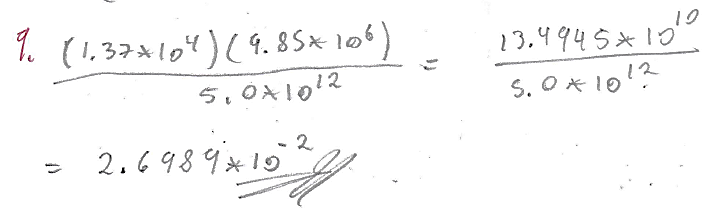 9. (1.37*10^4)(9.85*10^6) / 5.0*10^12 = 13.4945*10^10 / 5.0*10^12
= 2.6989*10^-2